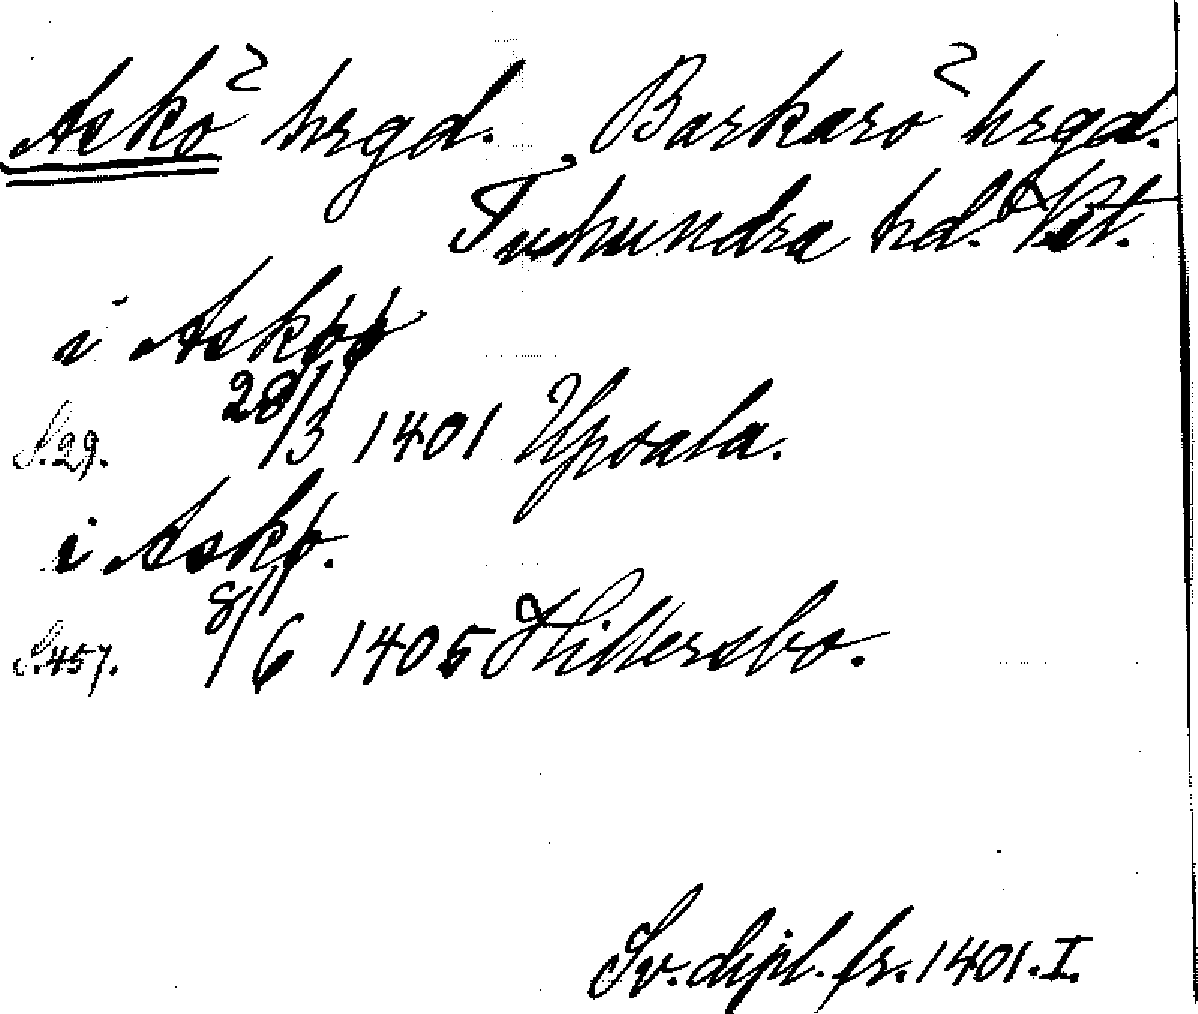 Askö hrgd. Barkarö hrgd.
Tuhundra hd. Vst.
i Askøø
S. 29. 28/3 1401 Upsala.
i Askø.
S. 457. 8/6 1405
Sv. dipl. fr. 1401. I.